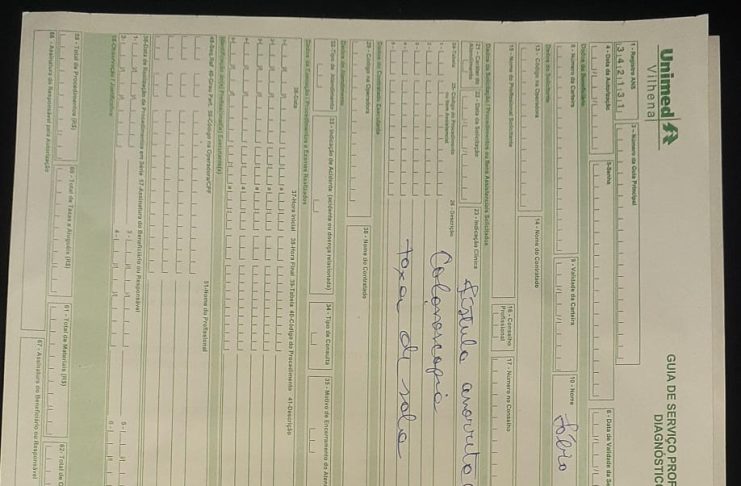 Unimed
Vilhena
GUIA DE SERVIÇO PROF
DIAGNÓSTICO
1 - Registro ANS
342131
3 - Número da Guia Principal
4 - Data da Autorização
5-Senha
6 - Data de Validade da Se
Dados do Beneficiário
8 - Número da Carteira
9 - Validade da Carteira
10 - Nome
Fábio
Dados do Solicitante
13 - Código na Operadora
14 - Nome do Contratado
15 - Nome do Profissional Solicitante
16 - Conselho Profissional
17 - Número no Conselho
Dados da Solicitação / Procedimentos ou Itens Assistenciais Solicitados
21 - Caráter do Atendimento
22 - Data da Solicitação
23 - Indicação Clínica
Fistula anorreta
24-Tabela
25- Código do Procedimento ou Item Assistencial
26 - Descrição
Colonoscopia
taxa de sala
Dados do Contratado Executante
29 - Código na Operadora
30 - Nome do Contratado
Dados do Atendimento
32-Tipo de Atendimento
33 - Indicação de Acidente (acidente ou doença relacionada)
34 - Tipo de Consulta
35 - Motivo de Encerramento do Aten
Dados da Execução / Procedimentos e Exames Realizados
36-Data
37-Hora Inicial
38-Hora Final
39-Tabela
40-Código do Procedimento
41-Descrição
Identificação do(s) Profissional(is) Executante(s)
48-Seq.Ref
49-Grau Part.
50-Código na Operadora/CPF
51-Nome do Profissional
56-Data de Realização de Procedimentos em Série
57-Assinatura do Beneficiário ou Responsável
58-Observação / Justificativa
59 - Total de Procedimentos (R$)
60 - Total de Taxas e Aluguéis (R$)
61 - Total de Materiais (R$)
62- Total de
66 - Assinatura do Responsável pela Autorização
67 - Assinatura do Beneficiário ou Responsável